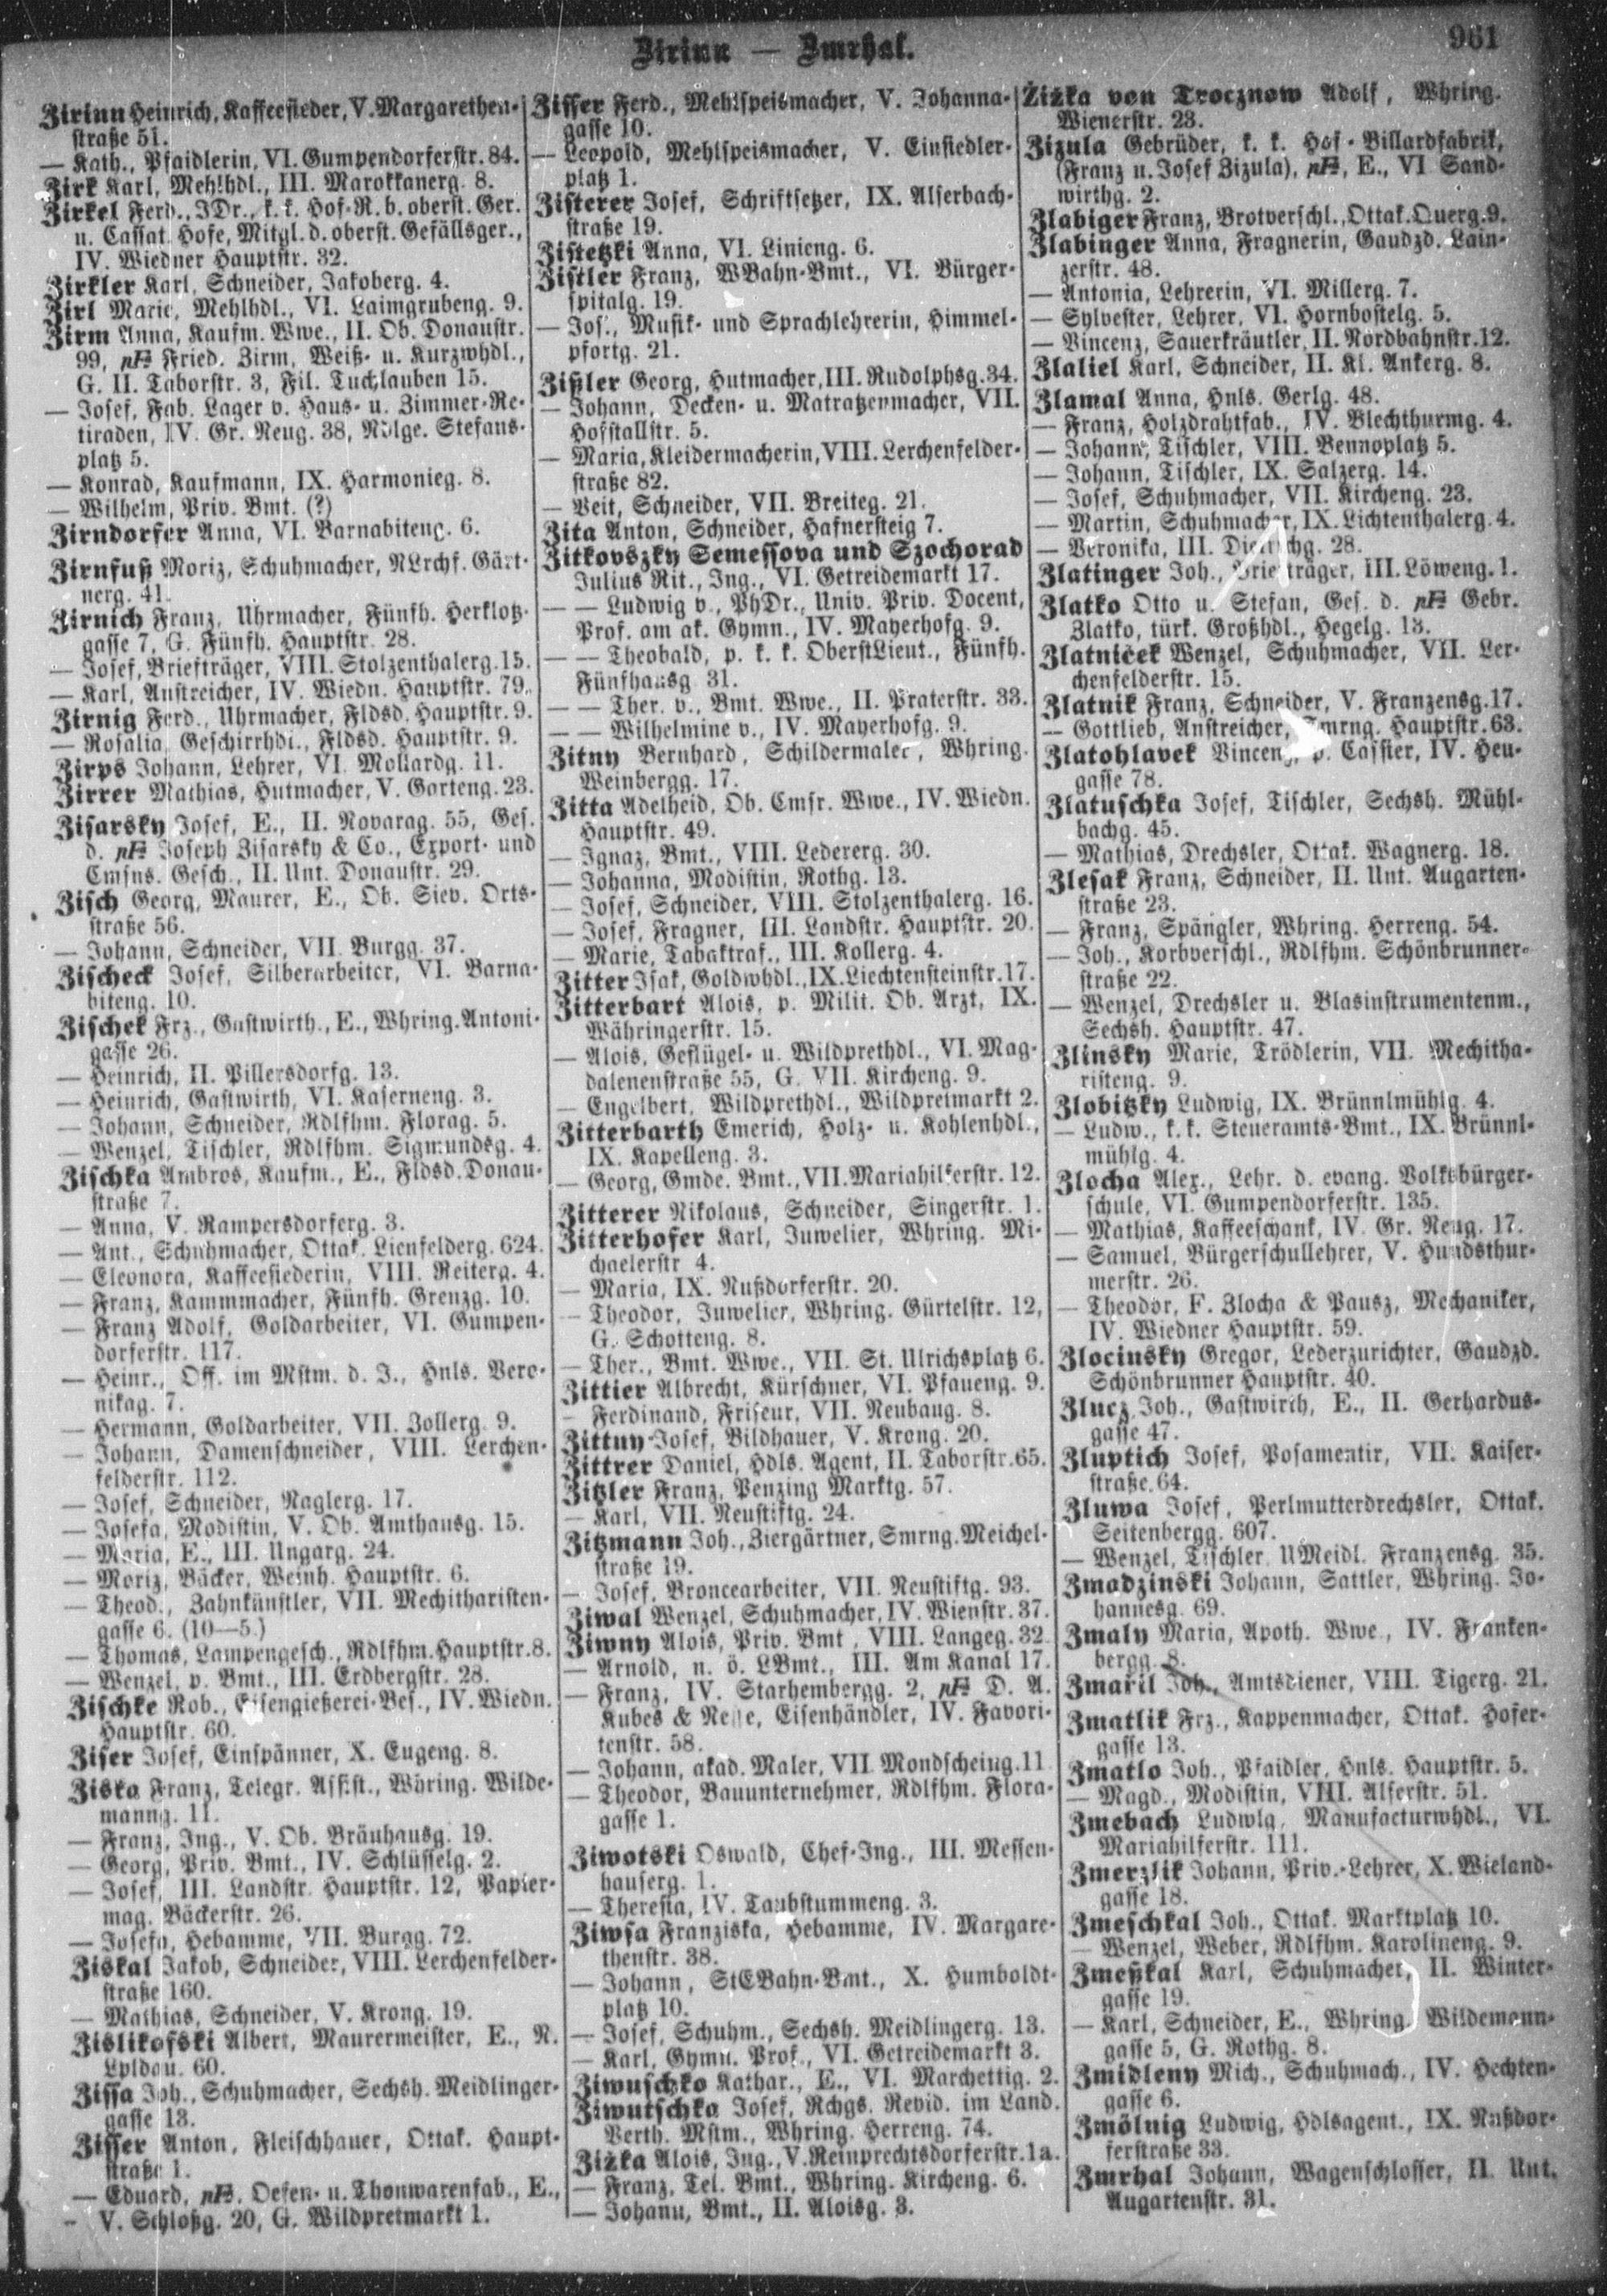 Zirinn — Zmrhal.
961
Zirinn Heinrich, Kaffeesieder, V. Margarethen-
straße 51.
— Kath., Pfaidlerin, VI. Gumpendorferstr. 84.
Zirk Karl, Mehlhdl., III. Marokkanerg. 8.
Zirkel Ferd., JDr., k. k. Hof-R. b. oberst. Ger.
u. Cassat. Hofe, Mitgl. d. oberst. Gefällsger.,
IV. Wiedner Hauptstr. 32.
Zirkler Karl, Schneider, Jakoberg. 4.
Zirl Marie, Mehlhdl., VI. Laimgrubeng. 9.
Zirm Anna, Kaufm. Wwe., II. Ob. Donaustr.
99, pF Fried. Zirm, Weiß- u. Kurzwhdl.,
G. II. Taborstr. 3, Fil. Tuchlauben 15.
— Josef, Fab. Lager v. Haus- u. Zimmer-Re-
tiraden, IV. Gr. Neug. 38, Nblge. Stefans-
platz 5.
— Konrad, Kaufmann, IX. Harmonieg. 8.
— Wilhelm, Priv. Bmt. (?)
Zirndorfer Anna, VI. Barnabiteng. 6.
Zirnfuß Moriz, Schuhmacher, NLrchf. Gärt-
nerg. 41.
Zirnich Franz, Uhrmacher, Fünfh. Herklotz-
gasse 7, G. Fünfh. Hauptstr. 28.
— Josef, Briefträger, VIII. Stolzenthalerg. 15.
— Karl, Anstreicher, IV. Wiedn. Hauptstr. 79.
Zirnig Ferd., Uhrmacher, Fldsd. Hauptstr. 9.
— Rosalia, Geschirrhdl., Fldsd. Hauptstr. 9.
Zirps Johann, Lehrer, VI. Mollardg. 11.
Zirrer Mathias, Hutmacher, V. Garteng. 23.
Zisarsky Josef, E., II. Novarag. 55, Ges.
d. pF Joseph Zisarsky & Co., Export- und
Cmsns. Gesch., II. Unt. Donaustr. 29.
Zisch Georg, Maurer, E., Ob. Siev. Orts-
straße 56.
— Johann, Schneider, VII. Burgg. 37.
Zischeck Josef, Silberarbeiter, VI. Barna-
biteng. 10.
Zischek Frz., Gastwirth., E., Whring. Antoni-
gasse 26.
— Heinrich, II. Pillersdorfg. 13.
— Heinrich, Gastwirth, VI. Kaserneng. 3.
— Johann, Schneider, Rdlfhm. Florag. 5.
— Wenzel, Tischler, Rdlfhm. Sigmundsg. 4.
Zischka Ambros, Kaufm., E., Fldsd. Donau-
straße 7.
— Anna, V. Rampersdorferg. 3.
— Ant., Schuhmacher, Ottak. Lienfelderg. 624.
— Eleonora, Kaffeesiederin, VIII. Reiterg. 4.
— Franz, Kammmacher, Fünfh. Grenzg. 10.
— Franz Adolf, Goldarbeiter, VI. Gumpen-
dorferstr. 117.
— Heinr., Off. im Mstm. d. J., Hnls. Vero-
nikag. 7.
— Hermann, Goldarbeiter, VII. Zollerg. 9.
— Johann, Damenschneider, VIII. Lerchen-
felderstr. 112.
— Josef, Schneider, Naglerg. 17.
— Josefa, Modistin, V. Ob. Amthausg. 15.
— Maria, E., III. Ungarg. 24.
— Moriz, Bäcker, Weinh. Hauptstr. 6.
— Theod., Zahnkünstler, VII. Mechitharisten-
gasse 6. (10—5.)
— Thomas, Lampengesch., Rdlfhm. Hauptstr. 8.
— Wenzel, p. Bmt., III. Erdbergstr. 28.
Zischke Rob., Eisengießerei-Bes., IV. Wiedn.
Hauptstr. 60.
Ziser Josef, Einspänner, X. Eugeng. 8.
Ziska Franz, Telegr. Assist., Whring. Wilde-
manng. 11.
— Franz, Ing., V. Ob. Bräuhausg. 19.
— Georg, Priv. Bmt., IV. Schlüsselg. 2.
— Josef, III. Landstr. Hauptstr. 12, Papier-
mag. Bäckerstr. 26.
— Josefa, Hebamme, VII. Burgg. 72.
Ziskal Jakob, Schneider, VIII. Lerchenfelder-
straße 160.
— Mathias, Schneider, V. Krong. 19.
Zislikofski Albert, Maurermeister, E., N.
Lpldau. 60.
Zissa Joh., Schuhmacher, Sechsh. Meidlinger-
gasse 13.
Zisser Anton, Fleischhauer, Ottak. Haupt-
straße 1.
— Eduard, pF. Oefen- u. Thonwarenfab., E.,
V. Schloßg. 20, G. Wildpretmarkt 1.
Zisser Ferd., Mehlspeismacher, V. Johanna-
gasse 10.
— Leopold, Mehlspeismacher, V. Einsiedler-
platz 1.
Zisterer Josef, Schriftsetzer, IX. Alserbach-
straße 19.
Zistetzki Anna, VI. Linieng. 6.
Zistler Franz, WBahn-Bmt., VI. Bürger-
spitalg. 19.
— Jos., Musik- und Sprachlehrerin, Himmel-
pfortg. 21.
Zißler Georg, Hutmacher, III. Rudolphsg. 34.
— Johann, Decken- u. Matratzenmacher, VII.
Hofstallstr. 5.
— Maria, Kleidermacherin, VIII. Lerchenfelder-
straße 82.
— Veit, Schneider, VII. Breiteg. 21.
Zita Anton, Schneider, Hafnersteig 7.
Zitkovszky Semessova und Szochorad
Julius Rit., Ing., VI. Getreidemarkt 17.
— — Ludwig v., PhDr., Univ. Priv. Docent,
Prof. am ak. Gymn., IV. Mayerhofg. 9.
— — Theobald, p. k. k. OberstLieut., Fünfh.
Fünfhausg 31.
— — Ther. v., Bmt. Wwe., II. Praterstr. 33.
— — Wilhelmine v., IV. Mayerhofg. 9.
Zitny Bernhard, Schildermaler, Whring.
Weinbergg. 17.
Zitta Adelheid, Ob. Cmsr. Wwe., IV. Wiedn.
Hauptstr. 49.
— Ignaz, Bmt., VIII. Ledererg. 30.
— Johanna, Modistin, Rothg. 13.
— Josef, Schneider, VIII. Stolzenthalerg. 16.
— Josef, Fragner, III. Landstr. Hauptstr. 20.
— Marie, Tabaktraf., III. Kollerg. 4.
Zitter Isak, Goldwhdl., IX. Liechtensteinstr. 17.
Zitterbart Alois, p. Milit. Ob. Arzt, IX.
Währingerstr. 15.
— Alois, Geflügel- u. Wildprethdl., VI. Mag-
dalenenstraße 55, G. VII. Kircheng. 9.
— Engelbert, Wildprethdl., Wildpretmarkt 2.
Zitterbarth Emerich, Holz- u. Kohlenhdl.,
IX. Kapelleng. 3.
— Georg, Gmde. Bmt., VII. Mariahilferstr. 12.
Zitterer Nikolaus, Schneider, Singerstr. 1.
Zitterhofer Karl, Juwelier, Whring. Mi-
chaelerstr 4.
— Maria, IX. Nußdorferstr. 20.
— Theodor, Juwelier, Whring. Gürtelstr. 12,
G. Schotteng. 8.
— Ther., Bmt. Wwe., VII. St. Ulrichsplatz 6.
Zittier Albrecht, Kürschner, VI. Pfaueng. 9.
— Ferdinand, Friseur, VII. Neubaug. 8.
Zittny Josef, Bildhauer, V. Krong. 20.
Zittrer Daniel, Hdls. Agent, II. Taborstr. 65.
Zitzler Franz, Penzing Marktg. 57.
— Karl, VII. Neustiftg. 24.
Zitzmann Joh., Ziergärtner, Smrng. Meichel-
straße 19.
— Josef, Broncearbeiter, VII. Neustiftg. 93.
Ziwal Wenzel, Schuhmacher, IV. Wienstr. 37.
Ziwny Alois, Priv. Bmt., VIII. Langeg. 32.
— Arnold, n. ö. LBmt., III. Am Kanal 17.
— Franz, IV. Starhembergg. 2, pF D. A.
Kubes & Neffe, Eisenhändler, IV. Favori-
tenstr. 58.
— Johann, akad. Maler, VII Mondscheing. 11
— Theodor, Bauunternehmer, Rdlfhm. Flora-
gasse 1.
Ziwotski Oswald, Chef-Ing., III. Messen-
hauserg. 1.
— Theresia, IV. Taubstummeng. 3.
Ziwsa Franziska, Hebamme, IV. Margare-
thenstr. 38.
— Johann, StEBahn-Bmt., X. Humboldt-
platz 10.
— Josef, Schuhm., Sechsh. Meidlingerg. 13.
— Karl, Gymn. Prof., VI. Getreidemarkt 3.
Ziwuschko Kathar., E., VI. Marchettig. 2.
Ziwutschka Josef, Rchgs. Revid. im Land.
Verth. Mstm., Whring. Herreng. 74.
Zižka Alois, Ing., V. Reinprechtsdorferstr. 1a.
— Franz, Tel. Bmt., Whring. Kircheng. 6.
— Johann, Bmt., II. Aloisg. 3.
Žižka von Trocznow Adolf, Whring.
Wienerstr. 23.
Zizula Gebrüder, k. k. Hof-Billardfabrik,
(Franz u. Josef Zizula), pF, E., VI Sand-
wirthg. 2.
Zlabiger Franz, Brotverschl., Ottak. Querg. 9.
Zlabinger Anna, Fragnerin, Gaudzd. Lain-
zerstr. 48.
— Antonia, Lehrerin, VI. Millerg. 7.
— Sylvester, Lehrer, VI. Hornbostelg. 5.
— Vincenz, Sauerkräutler, II. Nordbahnstr. 12.
Zlaliel Karl, Schneider, II. Kl. Ankerg. 8.
Zlamal Anna, Hnls. Gerlg. 48.
— Franz, Holzdrahtfab., IV. Blechthurmg. 4.
— Johann, Tischler, VIII. Bennoplatz 5.
— Johann, Tischler, IX. Salzerg. 14.
— Josef, Schuhmacher, VII. Kircheng. 23.
— Martin, Schuhmacher, IX. Lichtenthalerg. 4.
— Veronika, III. Dietrichg. 28.
Zlatinger Joh., Briefträger, III. Löweng. 1.
Zlatko Otto u. Stefan, Ges. d. pF Gebr.
Zlatko, türk. Großhdl., Hegelg. 13.
Zlatniček Wenzel, Schuhmacher, VII. Ler-
chenfelderstr. 15.
Zlatnik Franz, Schneider, V. Franzensg. 17.
— Gottlieb, Anstreicher, Smrng. Hauptstr. 63.
Zlatohlavek Vincenz, p. Cassier, IV. Heu-
gasse 78.
Zlatuschka Josef, Tischler, Sechsh. Mühl-
bachg. 45.
— Mathias, Drechsler, Ottak. Wagnerg. 18.
Zlesak Franz, Schneider, II. Unt. Augarten-
straße 23.
— Franz, Spängler, Whring. Herreng. 54.
— Joh., Korbverschl., Rdlfhm. Schönbrunner-
straße 22.
— Wenzel, Drechsler u. Blasinstrumentenm.,
Sechsh. Hauptstr. 47.
Zlinsky Marie, Trödlerin, VII. Mechitha-
risteng. 9.
Zlobitzky Ludwig, IX. Brünnlmühlg. 4.
— Ludw., k. k. Steueramts-Bmt., IX. Brünnl-
mühlg. 4.
Zlocha Alex., Lehr. d. evang. Volksbürger-
schule, VI. Gumpendorferstr. 135.
— Mathias, Kaffeeschank, IV. Gr. Neug. 17.
— Samuel, Bürgerschullehrer, V. Hundsthur-
merstr. 26.
— Theodor, F. Zlocha & Pausz, Mechaniker,
IV. Wiedner Hauptstr. 59.
Zlocinsky Gregor, Lederzurichter, Gaudzd.
Schönbrunner Hauptstr. 40.
Zlucz Joh., Gastwirth, E., II. Gerhardus-
gasse 47.
Zluptich Josef, Posamentir, VII. Kaiser-
straße 64.
Zluwa Josef, Perlmutterdrechsler, Ottak.
Seitenbergg. 607.
— Wenzel, Tischler, UMeidl. Franzensg. 35.
Zmadzinski Johann, Sattler, Whring. Jo-
hannesg. 69.
Zmaly Maria, Apoth. Wwe., IV. Franken-
bergg. 8.
Zmařil Joh., Amtsdiener, VIII. Tigerg. 21.
Zmatlik Frz., Kappenmacher, Ottak. Hofer-
gasse 13.
Zmatlo Joh., Pfaidler, Hnls. Hauptstr. 5.
— Magd., Modistin, VIII. Alserstr. 51.
Zmebach Ludwig, Manufacturwhdl., VI.
Mariahilferstr. 111.
Zmerzlik Johann, Priv.-Lehrer, X. Wieland-
gasse 18.
Zmeschkal Joh., Ottak. Marktplatz 10.
— Wenzel, Weber, Rdlfhm. Karolineng. 9.
Zmeßkal Karl, Schuhmacher, II. Winter-
gasse 19.
— Karl, Schneider, E., Whring. Wildemann-
gasse 5, G. Rothg. 8.
Zmidleny Mich., Schuhmach., IV. Hechten-
gasse 6.
Zmölnig Ludwig, Hdlsagent., IX. Nußdor-
ferstraße 33.
Zmrhal Johann, Wagenschlosser, II. Unt.
Augartenstr. 31.